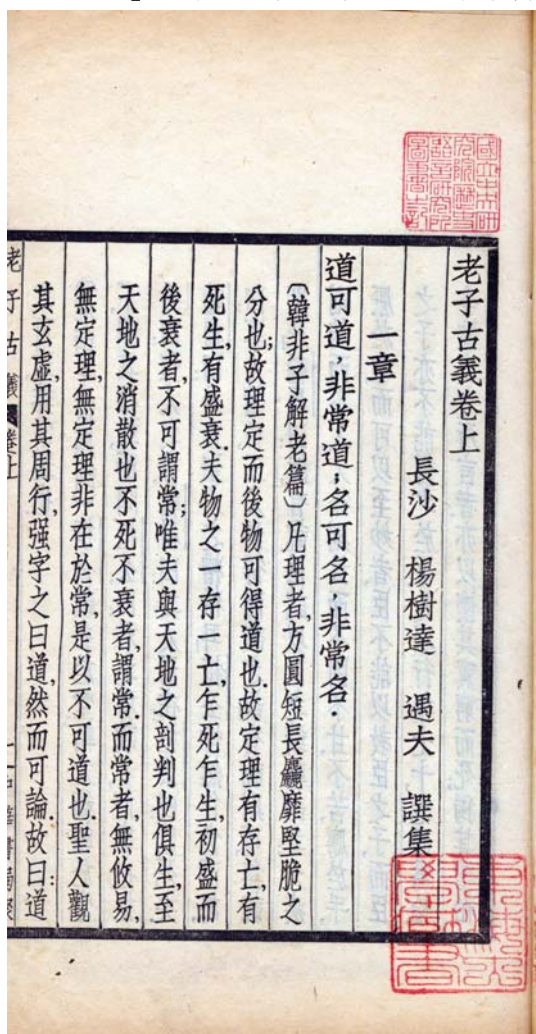 老子古義卷上
長沙 楊樹達 遇夫 譔集
一章
道可道，非常道；名可名，非常名．
〔韓非子解老篇〕凡理者，方圓短長麤靡堅脆之
分也；故理定而後物可得道也．故定理有存亡，有
死生，有盛衰．夫物之一存一亡，乍死乍生，初盛而
後衰者，不可謂常；唯夫與天地之剖判也俱生，至
天地之消散也不死不衰者，謂常．而常者，無攸易，
無定理，無定理非在於常，是以不可道也．聖人觀
其玄虛，用其周行，强字之曰道，然而可論．故曰：道
老子古義 卷上
國立中央研究院歷史語言研究所圖書之記